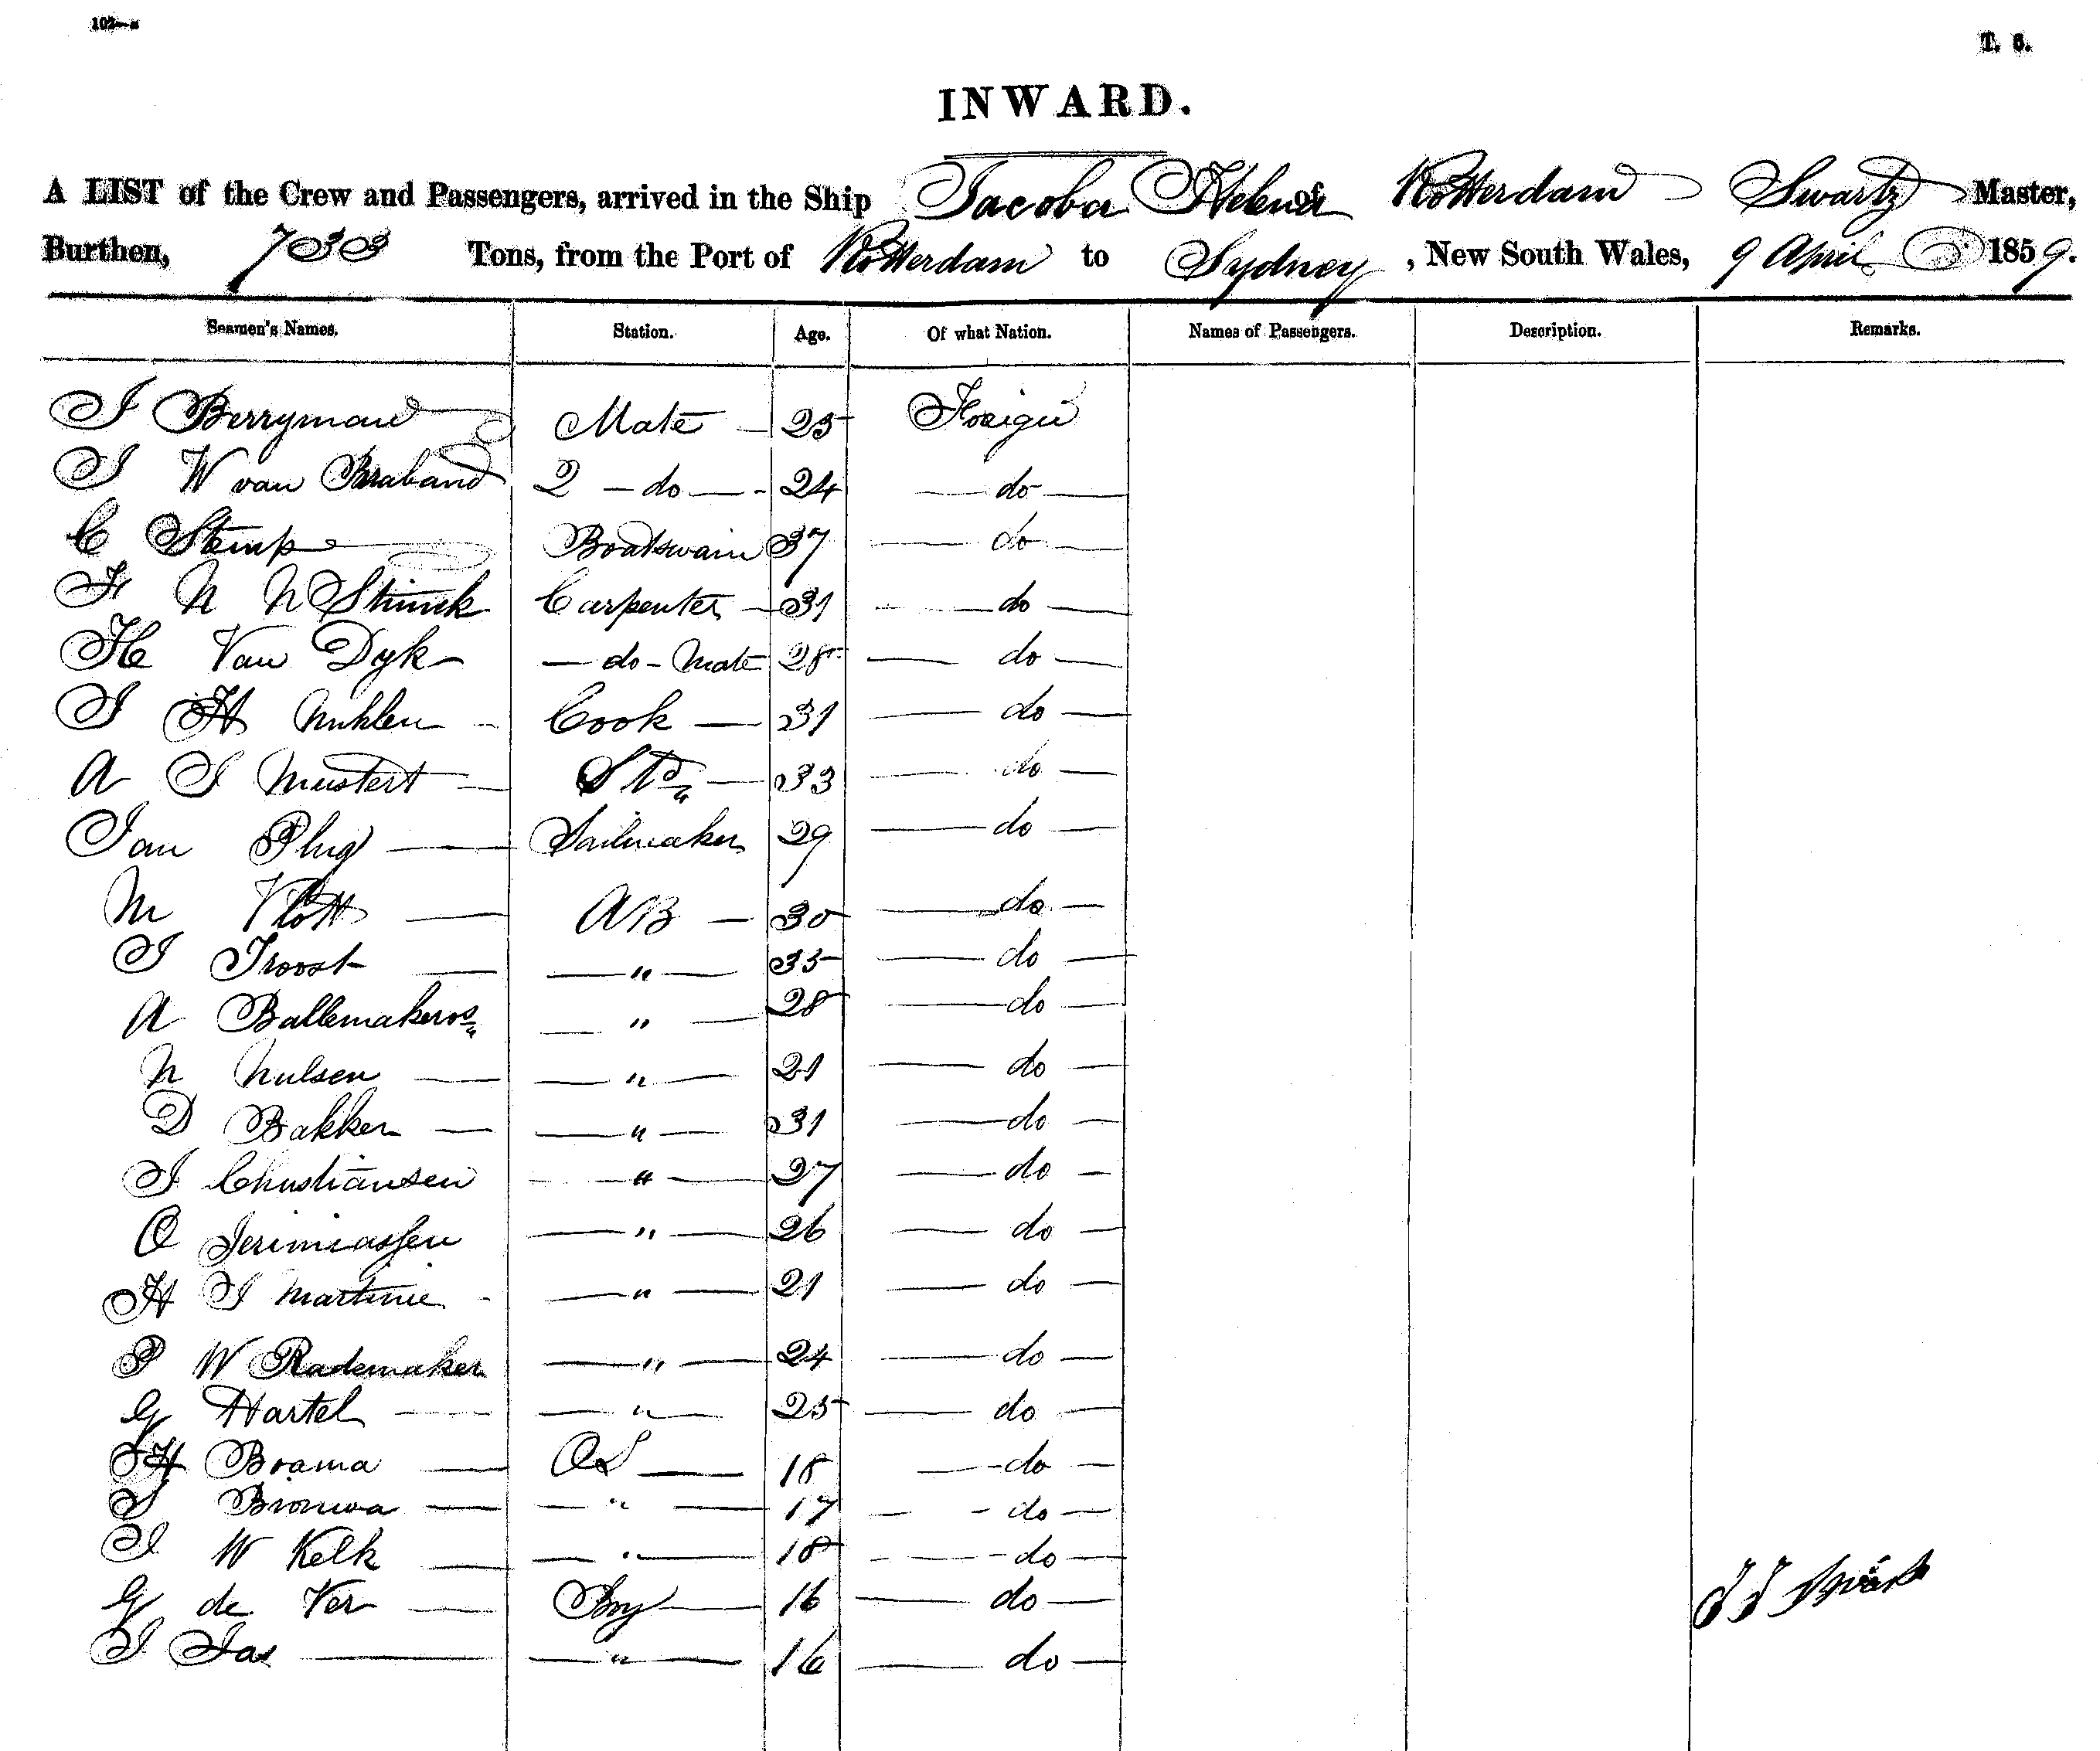 T. 6.
INWARD.
A LIST of the Crew and Passengers, arrived in the Ship Jacoba Helena of Rotterdam Swartz Master,
Burthen, 703 Tons, from the Port of Rotterdam to Sydney, New South Wales, 9 April 1859.
Seamen's Names. Station. Age. Of what Nation. Names of Passengers. Description. Remarks.
J Berryman Mate 25 Foreign
J W van Braband 2 - do - 24 do
C Stemp Boatswain 37 do
F N N Strunk Carpenter 31 do
H Van Dyk - do - Mate 28 do
J H Muhlen Cook 31 do
A J Mustert Std 33 do
Jan Plug Sailmaker 29 do
M Vlott AB 30 do
J Troost " 35 do
A Ballemakers " 28 do
N Nulsen " 21 do
D Bakker " 31 do
J Christiansen " 27 do
O Jerimiassen " 26 do
H J Martinie " 21 do
P W Rademaker " 24 do
G Hartel " 25 do
J H Boama OS 18 do
J Bronwa " 17 do
J W Kelk " 18 do
G de Ver Boy 16 do
J Jas " 16 do